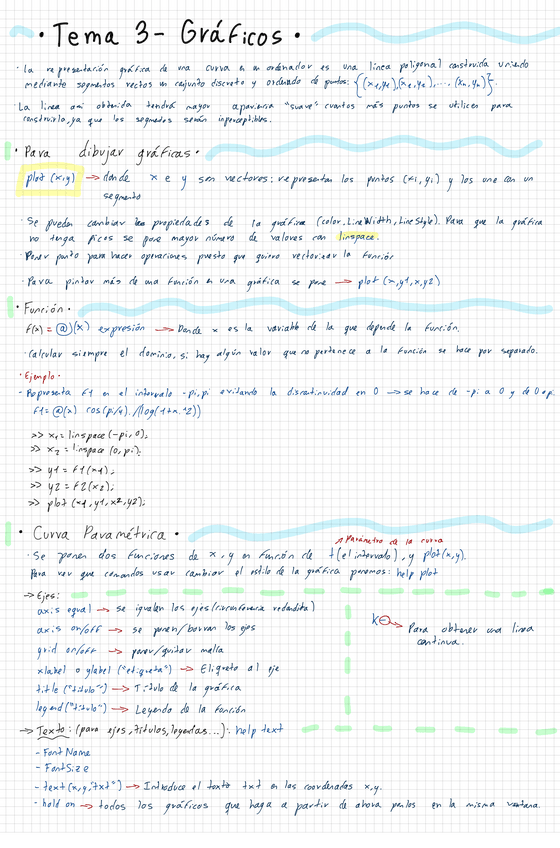 • Tema 3- Gráficos •
· La representación gráfica de una curva en un ordenador es una línea poligonal construida uniendo
mediante segmentos rectos un conjunto discreto y ordenado de puntos: {(x1,y1),(x2,y2),... (xn,yn)}.
· La línea así obtenida tendrá mayor apariencia "suave" cuantos más puntos se utilicen para
construirla, ya que los segmentos serán imperceptibles.
• Para dibujar gráficas •
plot (x,y) → donde x e y son vectores: representan los puntos (xi, yi) y los une con un
segmento
· Se pueden cambiar las propiedades de la gráfica (color, LineWidth, LineStyle). Para que la gráfica
no tenga picos se pone mayor número de valores con linspace.
· Poner punto para hacer operaciones puesto que quiero vectorizar la función
· Para pintar más de una función en una gráfica se pone → plot (x,y1,x,y2)
• Función •
F(x) = @(x) expresión → Donde x es la variable de la que depende la función.
· Calcular siempre el dominio, si hay algún valor que no pertenece a la función se hace por separado.
· Ejemplo ·
- Representa f1 en el intervalo -pi,pi evitando la discontinuidad en 0 → se hace de -pi a 0 y de 0 a pi.
f1= @(x) cos(pi/4)./(log(1+x.^2))
>> x1= linspace (-pi, 0);
>> x2 = linspace (0, pi);
>> y1 = f1(x1);
>> y2 = f2(x2);
>> plot (x1,y1,x2,y2);
• Curva Paramétrica •
Parámetro de la curva
· Se ponen dos funciones de x, y en función de t (el intervalo), y plot(x,y).
Para ver que comandos usar cambiar el estilo de la gráfica ponemos: help plot
→ Ejes:
axis equal → se igualan los ejes (circunferencia redondita)
axis on/off → se ponen/borran los ejes
grid on/off → poner/quitar malla
xlabel o ylabel ("etiqueta") → Etiqueta al eje
title ("título") → Título de la gráfica
legend ("título") → Leyenda de la función
K- → Para obtener una línea
continua.
→ Texto: (para ejes, títulos, leyendas...): help text
- Font Name
- FontSize
- text (x,y,"txt") → Introduce el texto txt en las coordenadas x,y.
- hold on → todos los gráficos que haga a partir de ahora ponlos en la misma ventana.